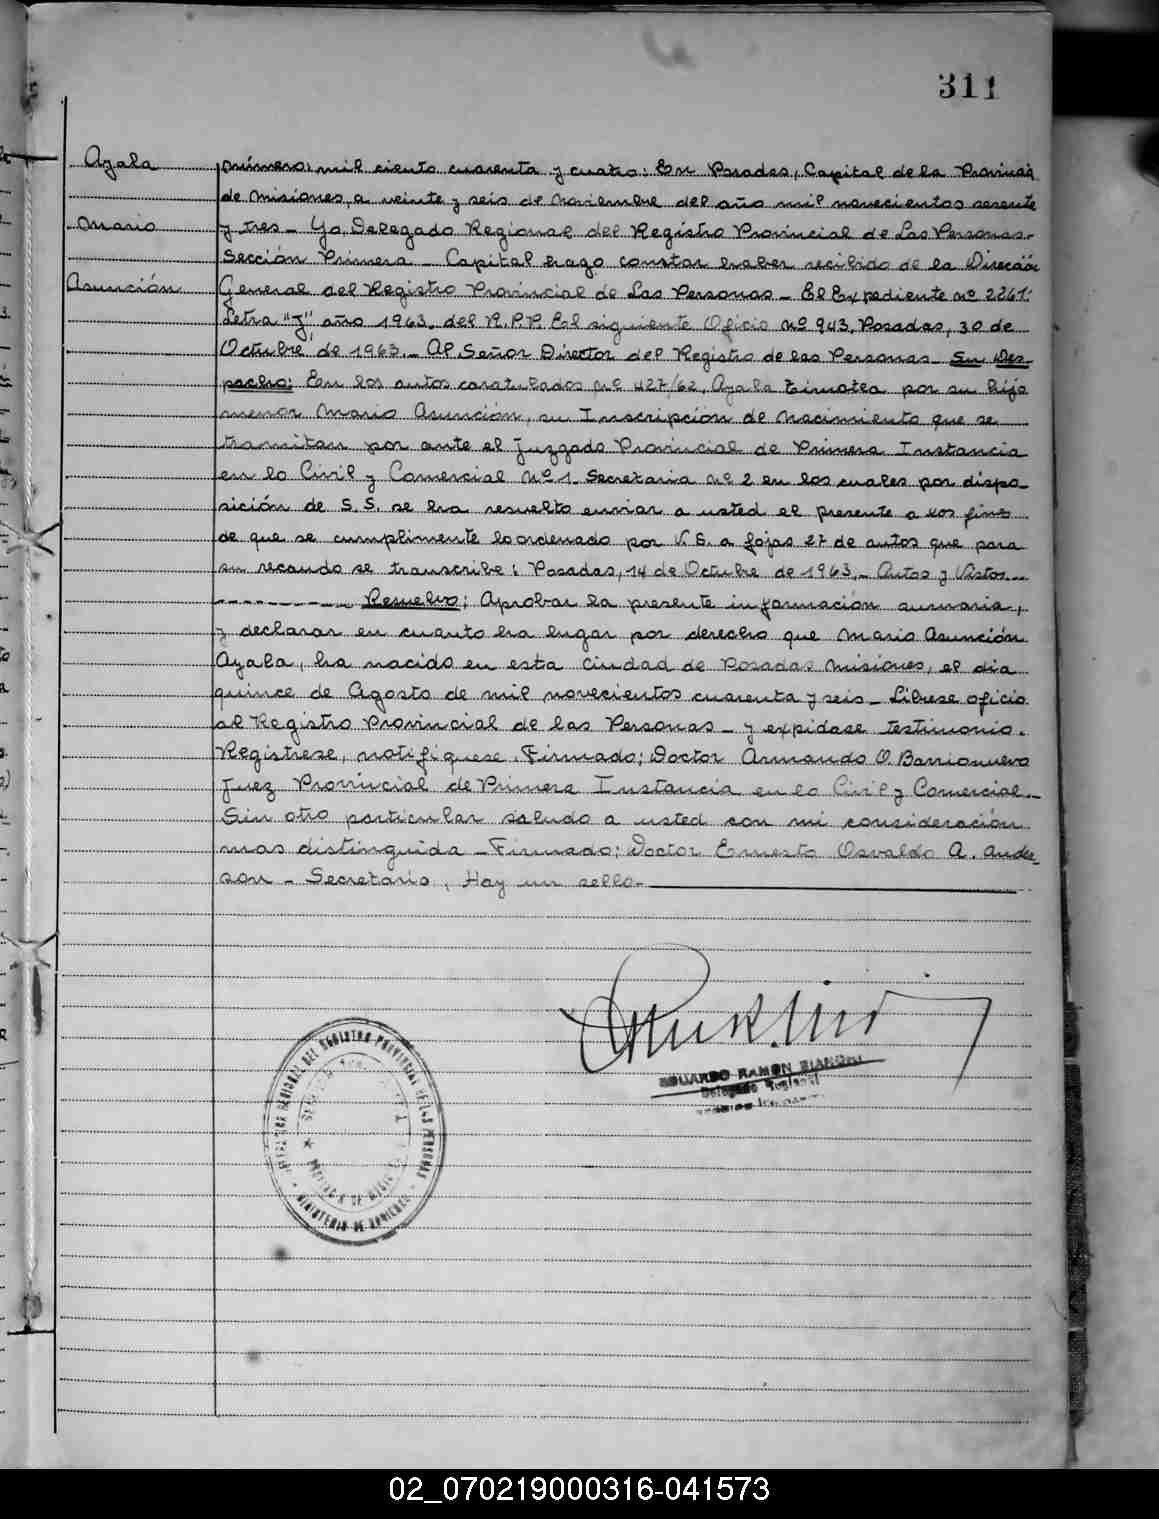 311
Ayala
Mario
Asunción
Número: mil ciento cuarenta y cuatro: En Posadas, Capital de la Provincia
de Misiones, a veinte y seis de Noviembre del año mil novecientos sesenta
y tres_ Yo, Delegado Regional del Registro Provincial de Las Personas-
Sección Primera _ Capital hago constar haber recibido de la Dirección
General del Registro Provincial de Las Personas _ El Expediente nº 2261:
Letra "J", año 1963, del R.P.P. El siguiente Oficio nº 943, Posadas, 30 de
Octubre, de 1963._ Al Señor Director del Registro de las Personas Su Des-
pacho: En los autos caratulados nº 427/62, Ayala Timotea por su hijo
menor Mario Asunción, su Inscripción de Nacimiento que se
tramitan por ante el Juzgado Provincial de Primera Instancia
en lo Civil y Comercial Nº 1. Secretaria nº 2 en los cuales por dispo_
sición de S.S. se ha resuelto enviar a usted el presente a los fines
de que se cumplimente lo ordenado por V.S. a fojas 27 de autos que para
su recaudo se transcribe: Posadas, 14 de Octubre de 1963._ Autos y Vistos_
Resuelvo: Aprobar la presente información sumaria,
y declarar en cuanto ha lugar por derecho que Mario Asunción
Ayala, ha nacido en esta Ciudad de Posadas Misiones, el dia
quince de Agosto de mil novecientos cuarenta y seis_ Librese oficio
al Registro Provincial de las Personas_ y expidase testimonio.
Registrese, notifiquese. Firmado: Doctor Armando O. Barrionuevo
Juez Provincial de Primera Instancia en lo Civil y Comercial._
Sin otro particular saludo a usted con mi consideración
mas distinguida _ Firmado: Doctor Ernesto Osvaldo A. Ander_
son _ Secretario, Hay un sello_
EDUARDO RAMON BIANCHI
Delegado Regional
DEL REGISTRO PROVINCIAL DE LAS PERSONAS
MINISTERIO DE GOBIERNO
02_070219000316-041573